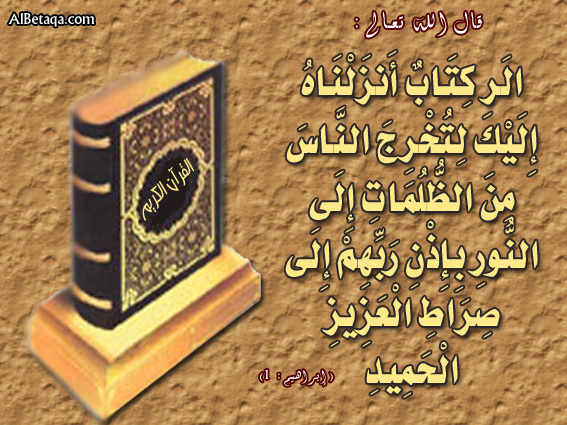 AlBetaqa.com
قال الله تعالى :
الَر كِتَابٌ أَنزَلْنَاهُ
إِلَيْكَ لِتُخْرِجَ النَّاسَ
مِنَ الظُّلُمَاتِ إِلَى
النُّورِ بِإِذْنِ رَبِّهِمْ إِلَى
صِرَاطِ الْعَزِيزِ
الْحَمِيدِ
(إبراهيم : 1)
القرآن الكريم